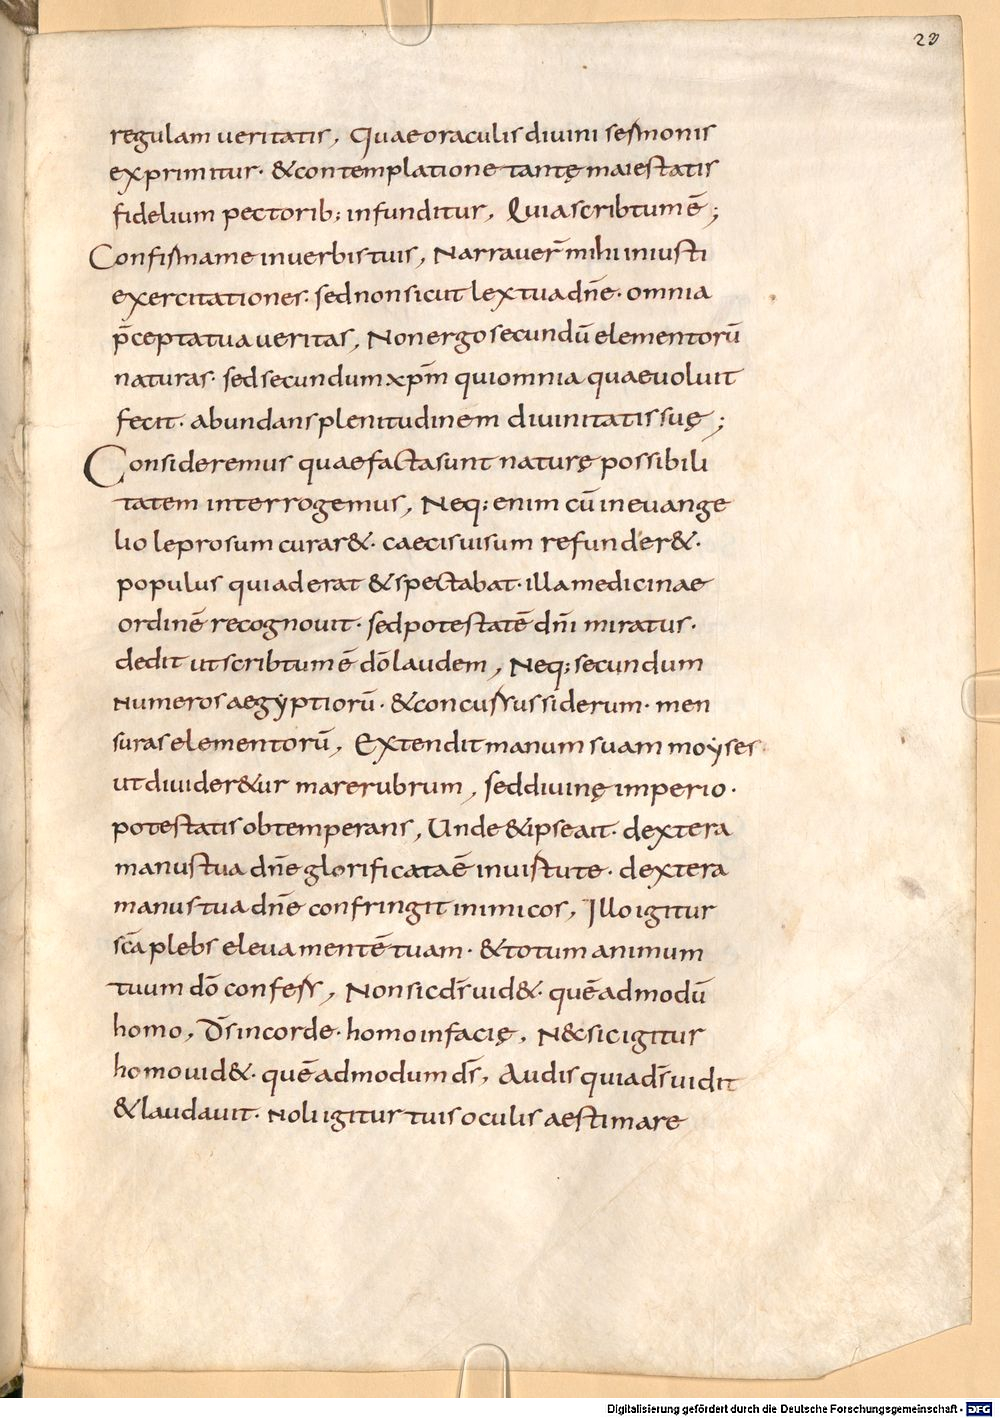 23
regulam ueritatis, Quae oraculis diuini sermonis
exprimitur· & contemplatione tantę maiestatis
fidelium pectorib; infunditur, Quia scribtum ē;
Confirma me in uerbis tuis, Narrauer̄ mihi iniusti
exercitationes· sed non sicut lex tua dn̄e· omnia
p̄cepta tua ueritas, Non ergo secundū elementorū
naturas· sed secundum xp̄m qui omnia quae uoluit
fecit· abundans plenitudinem diuinitatis suę;
Consideremus quae facta sunt naturę possibili
tatem interrogemus, Neq; enim cū in euange
lio leprosum curar&· caecis uisum refunder&·
populus qui aderat & spectabat· illa medicinae
ordinē recognouit· sed potestatē dn̄i miratus·
dedit ut scribtum ē dō laudem, Neq; secundum
numeros aegyptiorū· & concussus siderum· men
suras elementorū, Extendit manum suam moyses
ut diuider&ur mare rubrum, sed diuinę imperio·
potestatis obtemperans, Unde & ipse ait· dextera
manus tua dn̄e glorificata ē in uirtute· dextera
manus tua dn̄e confringit inimicos, Illo igitur
sc̄a plebs eleua mentē tuam· & totum animum
tuum dō confess, Non sic ds̄ uid&· quē admodū
homo, Ds̄ in corde· homo in facię, N& sic igitur
homo uid&· quē admodum ds̄, Audis quia ds̄ uidit
& laudauit· Noli igitur tuis oculis aestimare
Digitalisierung gefördert durch die Deutsche Forschungsgemeinschaft - DFG